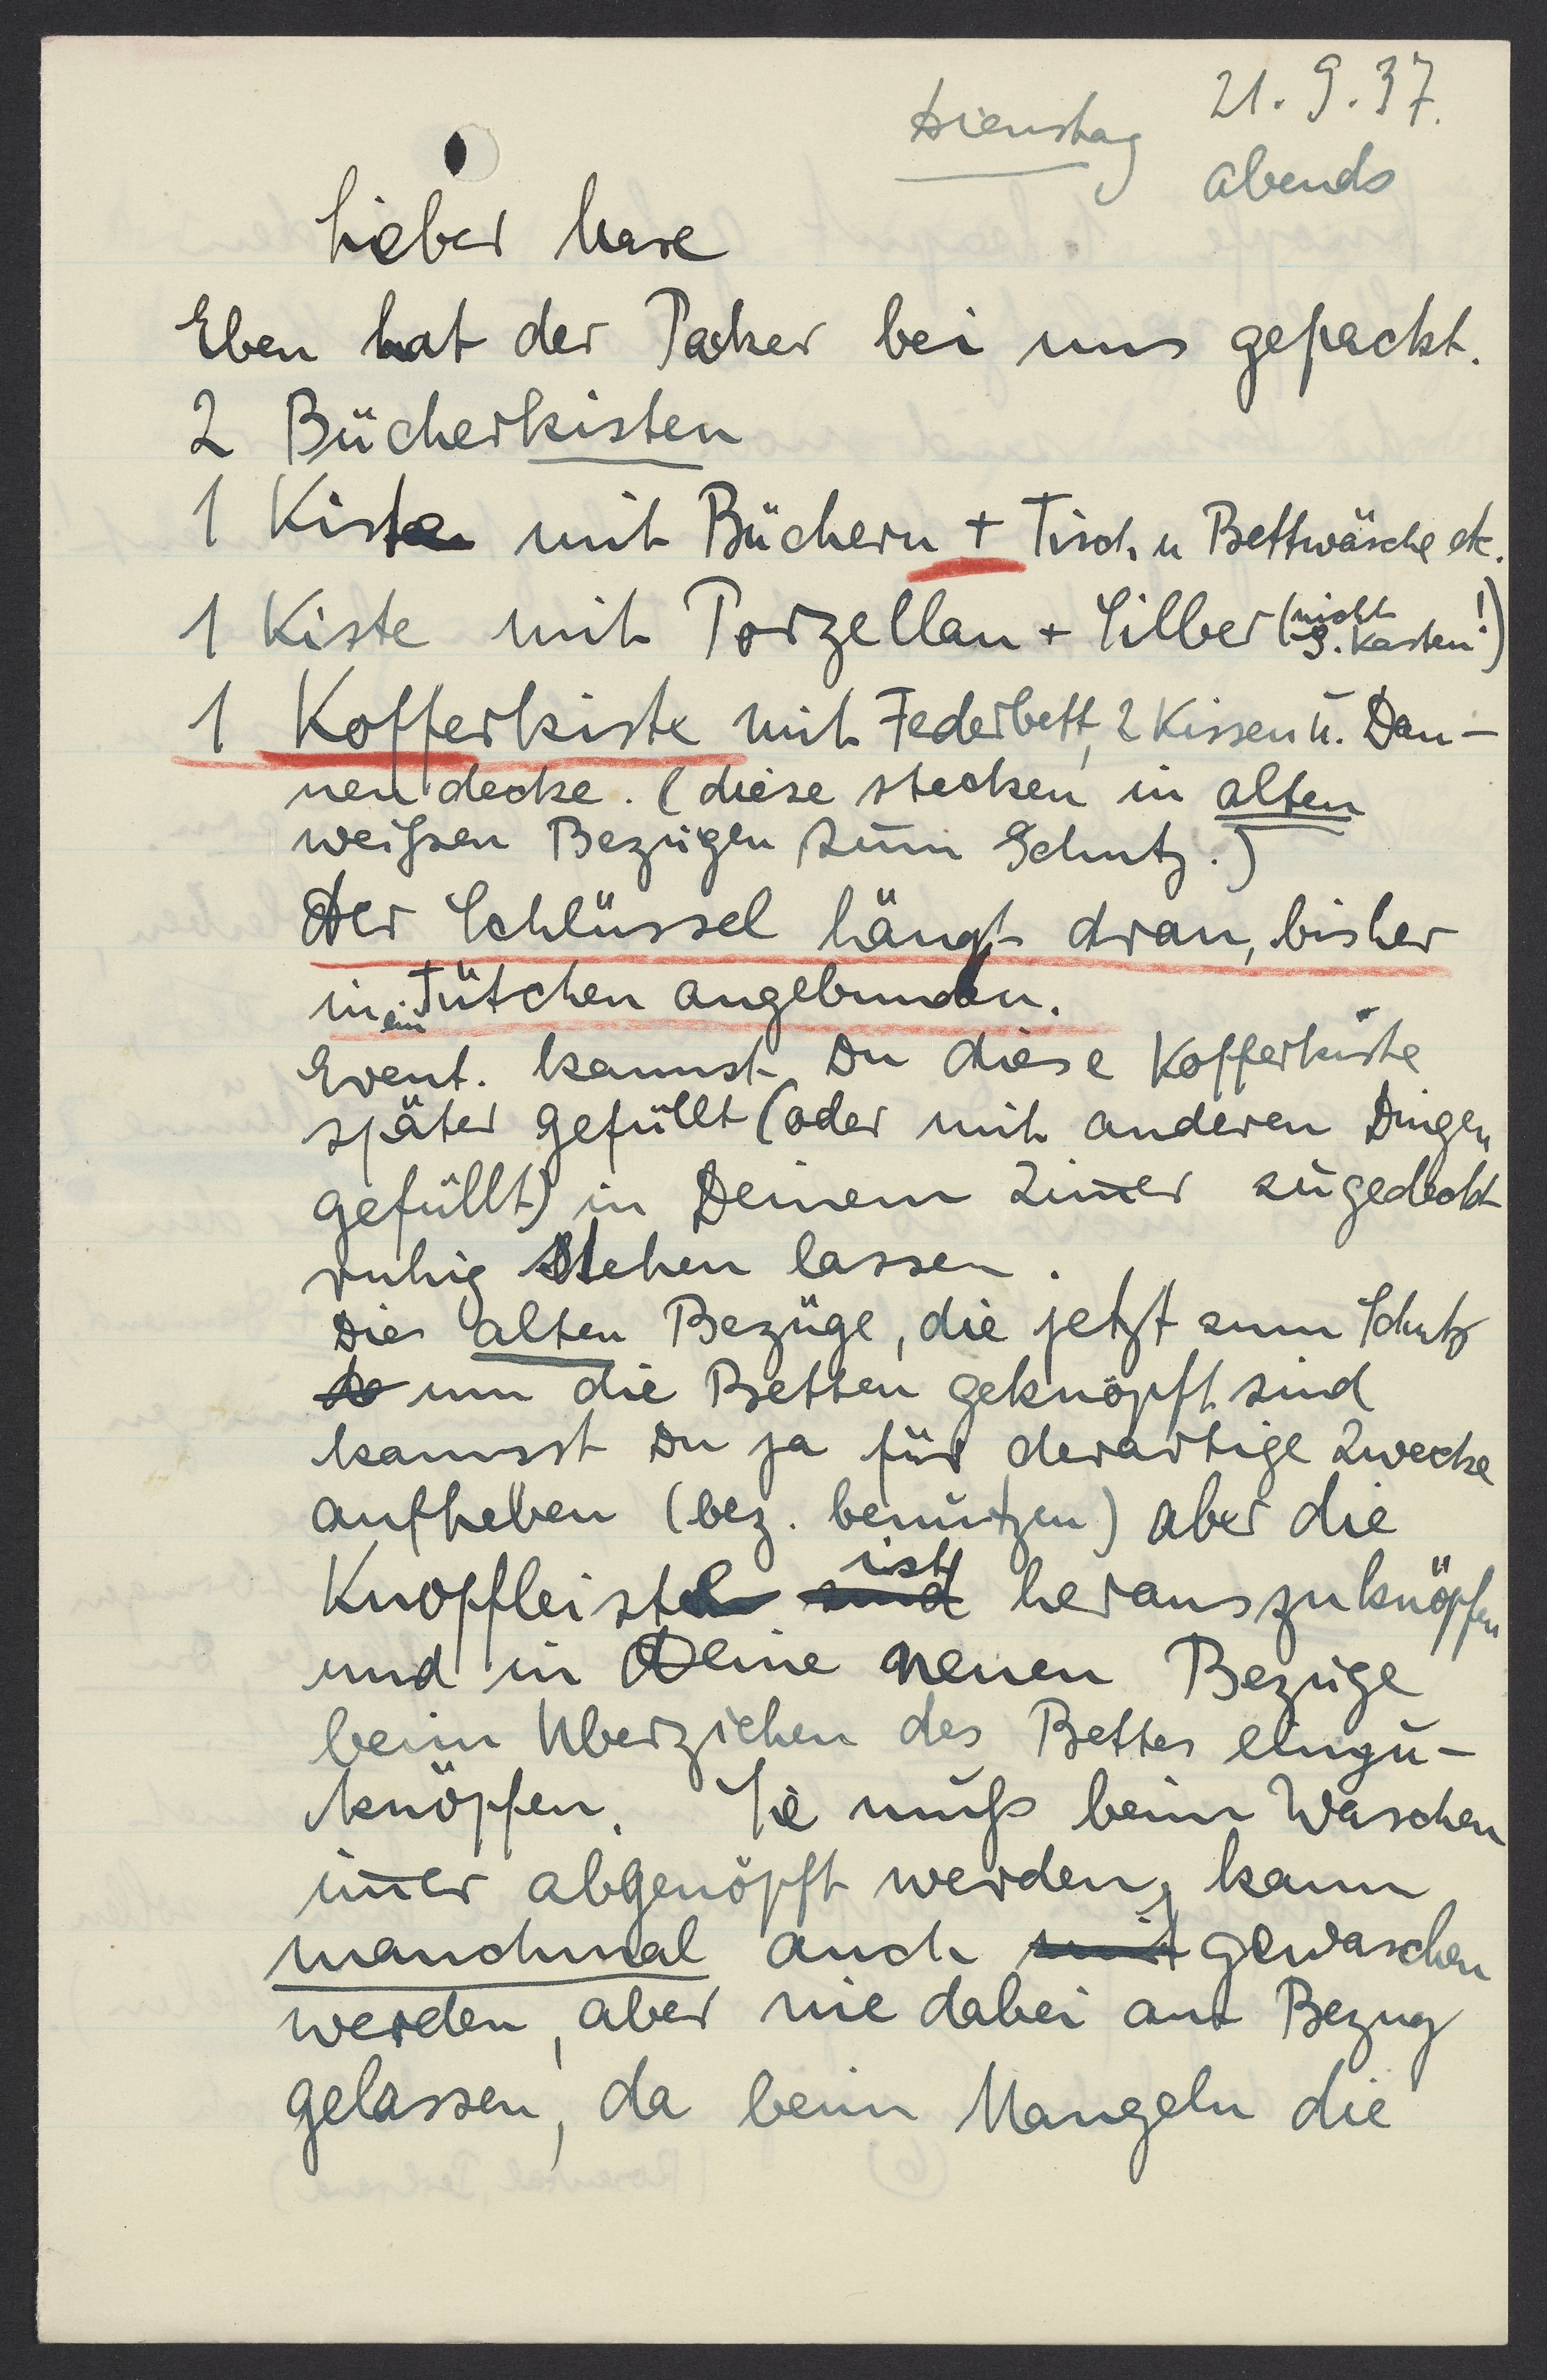 Dienstag 21.9.37.
abends
Lieber Hase
Eben hat der Packer bei uns gepackt.
2 Bücherkisten
1 Kiste mit Büchern + Tisch u Bettwäsche etc.
1 Kiste mit Porzellan + Silber (nicht S. Kasten!)
1 Kofferkiste mit Federbett, 2 Kissen u. Dau-
nendecke. (diese stecken in alten
weißen Bezügen zum Schutz.)
Der Schlüssel hängt dran, bisher
in ein Tütchen angebunden.
Event. kannst Du diese Kofferkiste
später gefüllt (oder mit anderen Dingen
gefüllt) in Deinem Zim̅er zugedeckt
ruhig stehen lassen.
Die alten Bezüge, die jetzt zum Schutz
um die Betten geknöpft sind
kannst Du ja für derartige Zwecke
aufheben (bez. benutzen) aber die
Knopfleiste ist herauszuknöpfen
und in Deine neuen Bezüge
beim Überziehen des Bettes einzu-
knöpfen. Sie muß beim Waschen
im̅er abgenöpft werden, kann
manchmal auch gewaschen
werden, aber nie dabei am Bezug
gelassen, da beim Mangeln die